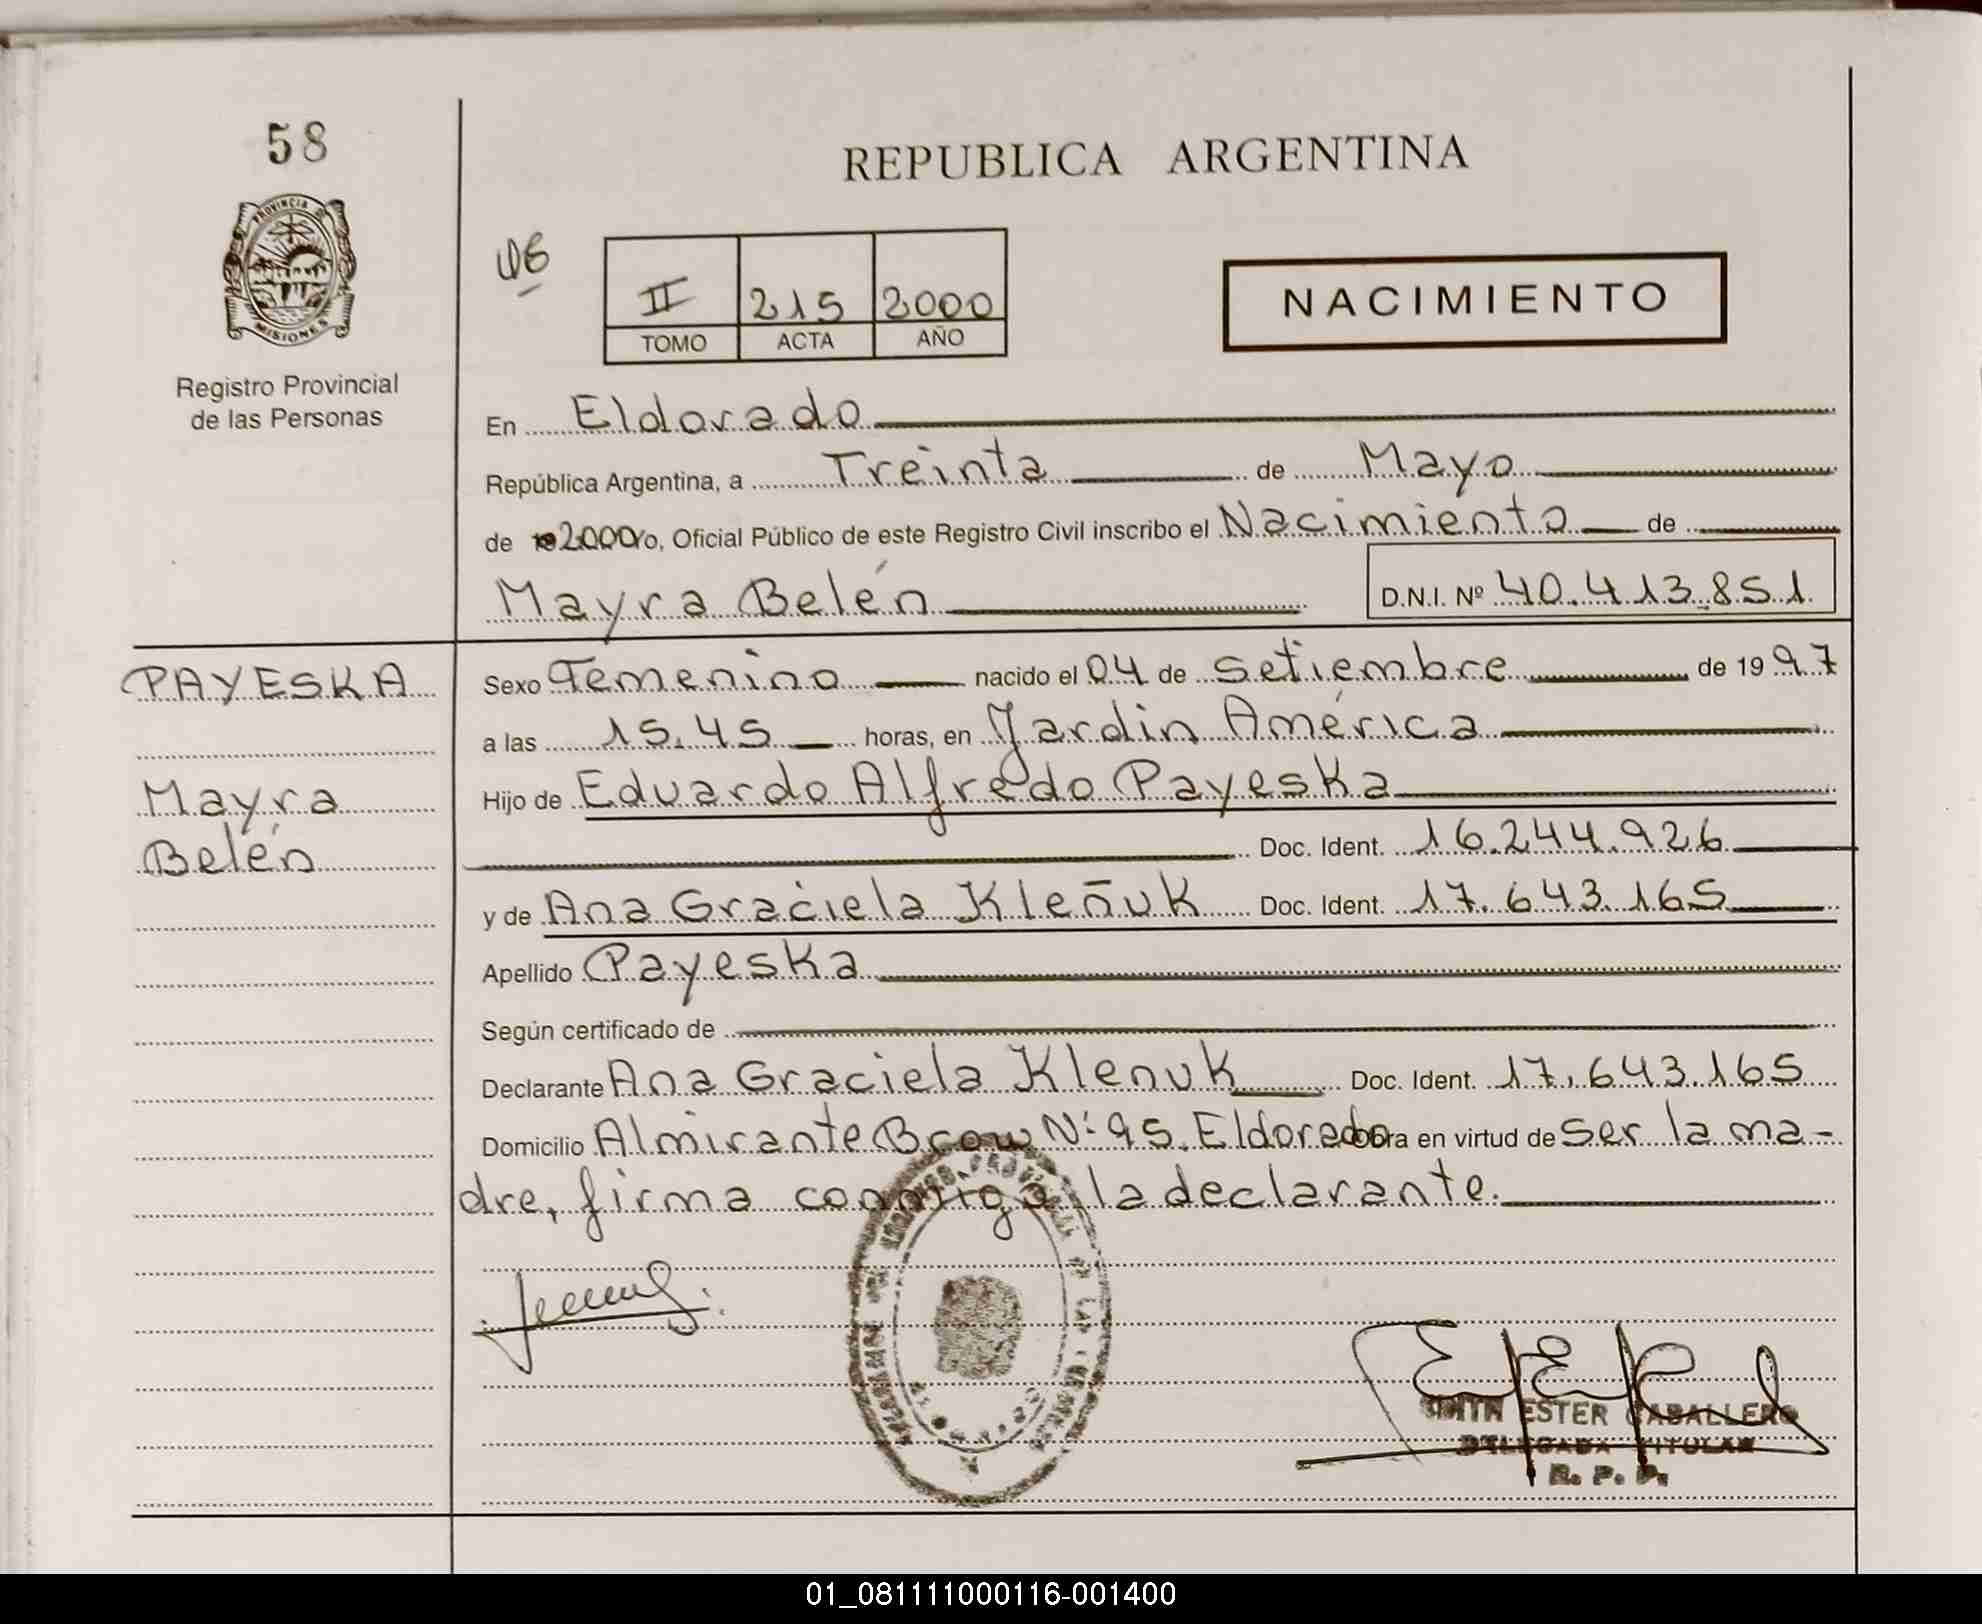 58
REPUBLICA ARGENTINA
PROVINCIA DE
MISIONES
Registro Provincial
de las Personas
II 215 2000
TOMO ACTA AÑO
NACIMIENTO
En Eldorado
República Argentina, a Treinta de Mayo
de 2000, Oficial Público de este Registro Civil inscribo el Nacimiento de
Mayra Belén D.N.I. Nº 40.413.851
PAYESKA
Mayra
Belén
Sexo Femenino nacido el 04 de Setiembre de 1997
a las 15.45 horas, en Jardin América
Hijo de Eduardo Alfredo Payeska
Doc. Ident. 16.244.926
y de Ana Graciela Kleñuk Doc. Ident. 17.643.165
Apellido Payeska
Según certificado de
Declarante Ana Graciela Klenuk Doc. Ident. 17.643.165
Domicilio Almirante Brow Nº 95. Eldorado obra en virtud de ser la ma-
dre, firma conmigo la declarante.
EDITH ESTER CABALLERO
DELEGADA TITULAR
R. P. P.
01_081111000116-001400